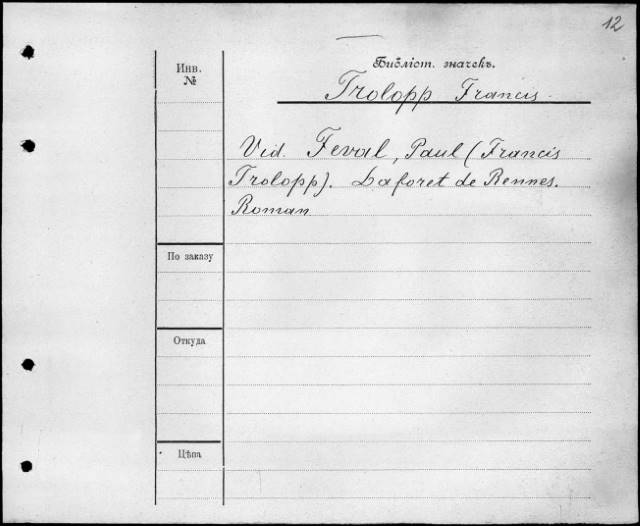 12
Инв.
№
Библіот. значекъ.
Trolopp Francis.
Vid. Feval, Paul (Francis
Trolopp). Laforet de Rennes.
Roman
По заказу
Откуда
Цѣна